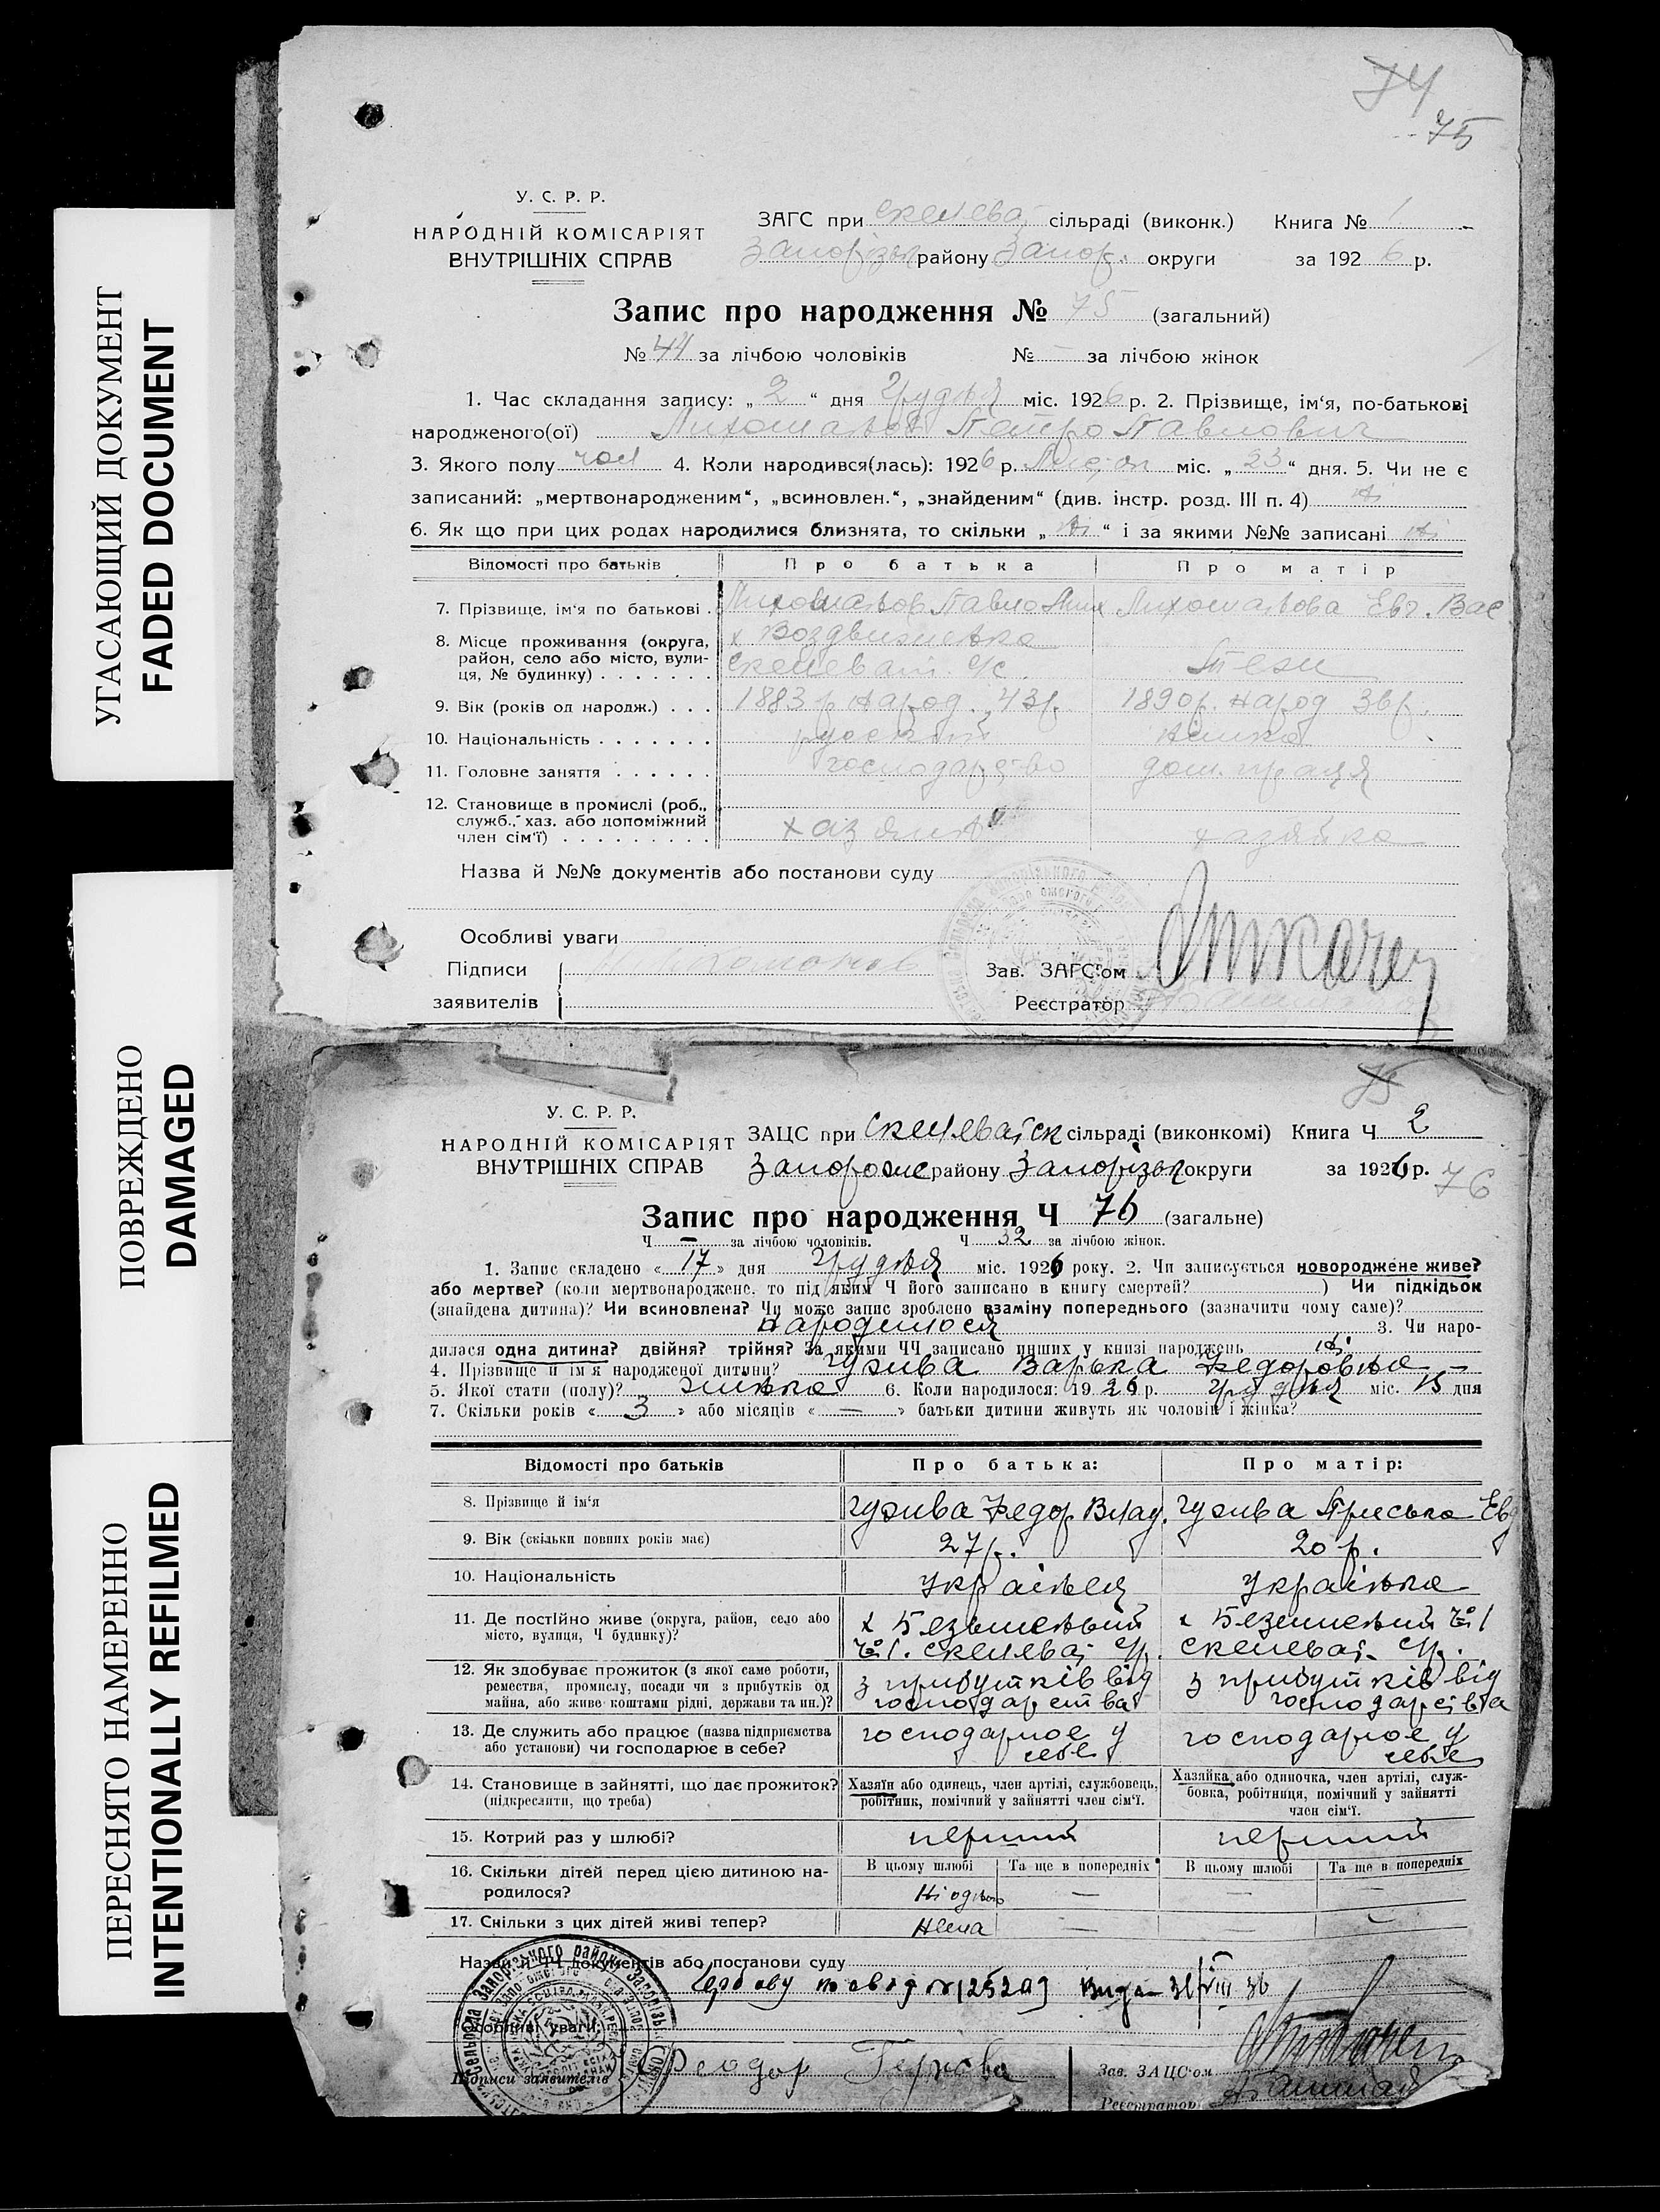 УГАСАЮЩИЙ ДОКУМЕНТ
FADED DOCUMENT
ПОВРЕЖДЕНО
DAMAGED
ПЕРЕСНЯТО НАМЕРЕННО
INTENTIONALLY REFILMED
74
75
У. С. Р. Р.
НАРОДНІЙ КОМІСАРІЯТ
ВНУТРІШНІХ СПРАВ
ЗАГС при скелеват сільраді (виконк.) Книга № 1
Запорізьк району Запор. округи за 1926 р.
Запис про народження № 75 (загальний)
№ 44 за лічбою чоловіків № – за лічбою жінок
1. Час складання запису: „ 2 “ дня Грудня міс. 1926 р. 2. Прізвище, ім‘я, по-батькові
народженого(ої) Петро Павлович
3. Якого полу чол 4. Коли народився(лась): 1926 р. міс. „ 23 “ дня. 5. Чи не є
записаний: „мертвонародженим“, „всиновлен.“, „знайденим“ (див. інстр. розд. III п. 4) ні
6. Як що при цих родах народилися близнята, то скільки „ ні “ і за якими №№ записані ні
Відомості про батьків Про батька Про матір
7. Прізвище, ім‘я по батькові . Павло Евг. Вас
8. Місце проживання (округа, район, село або місто, вулиця, № будинку) х Воздвиженка Скелеват. с/с.
9. Вік (років од народж.) 1883 р народ. 43 р. 1890 р. народ 36 р.
10. Національність руський
11. Головне заняття господарство дом. праця
12. Становище в промислі (роб., служб., хаз. або допоміжний член сім‘ї) хазяїн хазяйка
Назва й №№ документів або постанови суду
Особливі уваги
Підписи заявителів
Зав. ЗАГС‘ом Ткачен
Реєстратор
75
У. С. Р. Р.
НАРОДНІЙ КОМІСАРІЯТ
ВНУТРІШНІХ СПРАВ
ЗАЦС при Скелеватск сільраді (виконкомі) Книга Ч 2
Запорож району Запорізьк округи за 1926 р.
76
Запис про народження Ч 76 (загальне)
Ч – за лічбою чоловіків. Ч 32 за лічбою жінок.
1. Запис складено « 17 » дня Грудня міс. 1926 року. 2. Чи записується новороджене живе?
або мертве? (коли мертвонароджене, то під яким Ч його записано в книгу смертей? ) Чи підкідьок
(знайдена дитина)? Чи всиновлена? Чи може запис зроблено взаміну попереднього (зазначити чому саме)?
народилося 3. Чи наро-
дилася одна дитина? двійня? трійня? За якими ЧЧ записано инших у книзі народжень ні
4. Прізвище й ім‘я народженої дитини? Гужва Варька Федоровна –
5. Якої стати (полу)? жінка 6. Коли народилося: 1926 р. Грудня міс. 15 дня
7. Скільки років « 3 » або місяців « — » батьки дитини живуть як чоловік і жінка?
Відомості про батьків Про батька: Про матір:
8. Прізвище й ім‘я Гужва Федор Влад. Гужва Приська Евд
9. Вік (скільки повних років має) 27 р. 20 р.
10. Національність Українец Українка
11. Де постійно живе (округа, район, село або
місто, вулиця, Ч будинку)? х Безіменьний № 1. Скелеват с/р. х Безіменьний № 1 Скелеват. с/р.
12. Як здобуває прожиток (з якої саме роботи,
ремества, промислу, посади чи з прибутків од
майна, або живе коштами рідні, держави та ин.)? з прибутків від господарства з прибутків від господарства
13. Де служить або працює (назва підприємства
або установи) чи господарює в себе? господарює у себе господарює у себе
14. Становище в зайнятті, що дає прожиток?
(підкреслити, що треба)
Хазяїн або одинець, член артілі, службовець,
робітник, помічний у зайнятті член сім‘ї.
Хазяйка або одиночка, член артілі, служ-
бовка, робітниця, помічний у зайнятті
член сім‘ї.
15. Котрий раз у шлюбі? перший перший
16. Скільки дітей перед цією дитиною на-
родилося?
В цьому шлюбі Та ще в попередніх В цьому шлюбі Та ще в попередніх
Ні одного — — —
17. Скільки з цих дітей живі тепер? Нема — —
Назви й ЧЧ документів або постанови суду
31/VIII 36
Особливі уваги:
Підписи заявителів Феодор Гужва
Зав. ЗАЦС‘ом
Реєстратор